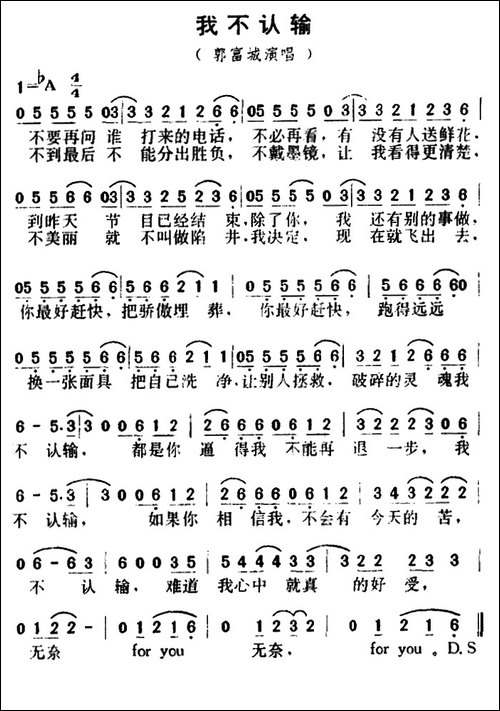 我不认输
（郭富城演唱）
1=♭A 4/4
0 5 5 5 5 5 03 | 3 3 2 1 2 6 6 | 05 5 5 5 5 0 3 | 3 3 2 1 6 6 6 6 |
不要再问 谁 打来的电话，不必再看，有 没有人送鲜花，
不到最后 不 能分出胜负，不戴墨镜，让 我看得更清楚，
0 5 5 5 6 6 03 | 3 3 2 5 2 3 6 | 05 5 5 6 6 0 3 | 3 3 2 1 2 1 2 |
到昨天 节 目已经结 束，除了你，我 还有别的事做，
不美丽 就 不叫做陷 井，我决定，现 在就飞出 去，
05 5 5 5 5 6 6 | 5 6 6 2 1 1 | 0 5 5 5 5 5 6 6 | 5 5 6 6 60
你最好赶快，把骄傲埋 葬，你最好赶快，跑得远远
0 5 5 5 5 5 6 6 | 5 6 6 2 1 1 | 05 5 5 5 5 6 6 | 3 2 1 2 6 6 6
换一张面具 把自己洗 净，让别人拯救，破碎的灵 魂我
6 - 5.3 | 3 0 0 6 1 2 | 1 6 6 6 0 6 1 2 | 6 1 2 2 3 2 1 2 |
不 认输， 都是你 逼 得我 不能再 退 一步，我
6 - 5.3 | 3 0 0 6 1 2 | 2 6 6 6 0 6 1 2 | 3 4 3 2 2 2
不 认输， 如果你 相 信我，不会有 今天的 苦，
0 6 - 6 3 | 6 0 0 3 5 | 5 4 4 4 3 3 | 3 2 2 2 3 3 |
不 认 输，难道 我心中 就真 的好 受，
0 1 2 2 - | 0 1 2 1 6 | 0 1 2 3 2 | 0 1 2 1 6 |
无奈 for you 无奈， for you 。D.S